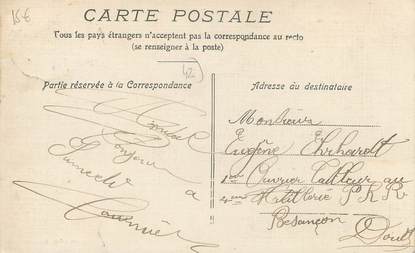 15€
CARTE POSTALE
Tous les pays étrangers n'acceptent pas la correspondance au recto
(se renseigner à la poste)
42
Partie réservée à la Correspondance
Bonjour
à
Adresse au destinataire
Monsieur
Eugène Ehrhardt
1er Ouvrier Tailleur au
4eme
Besançon
Doubs